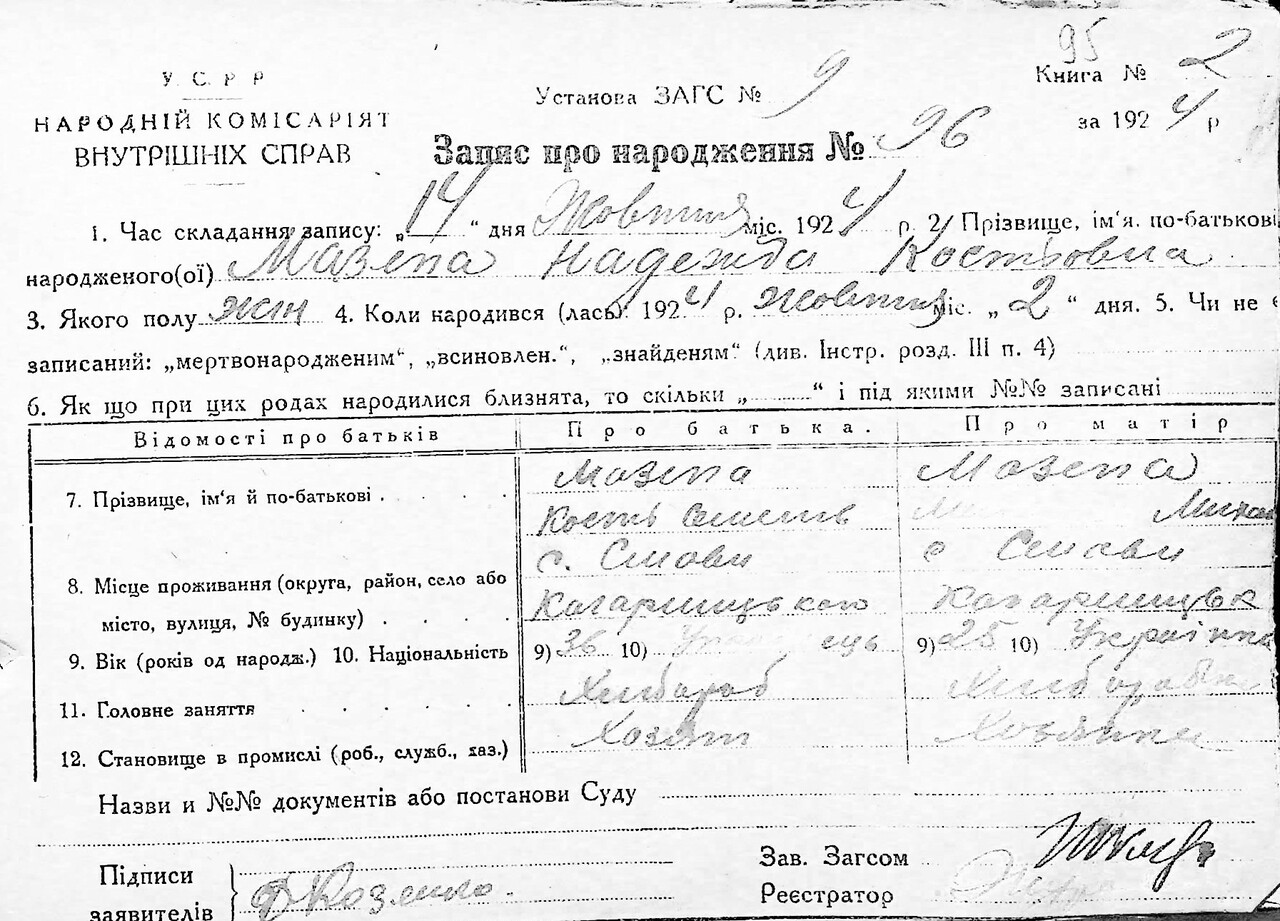 95
У. С. Р. Р
Установа ЗАГС № 9
Книга № 2
НАРОДНІЙ КОМІСАРІЯТ
за 1924 р
ВНУТРІШНІХ СПРАВ
Запис про народження № 96
1. Час складання запису: „14“ дня Жовтня міс. 1924 р. 2/ Прізвище, ім'я. по-батькові
народженого(ої) Мазепа Надежда Костьовна
3. Якого полу жін 4. Коли народився (лась): 1924 р. жовтня міс. „2“ дня. 5. Чи не є
записаний: „мертвонародженим“, „всиновлен.“, „знайденям“ (див. Інстр. розд. III п. 4)
6. Як що при цих родах народилися близнята, то скільки „......“ і під якими №№ записані
Відомості про батьків Про батька. Про матір
7. Прізвище, ім'я й по-батькові . Мазепа Мазепа
Кость
8. Місце проживання (округа, район, село або с. с
місто, вулиця, № будинку)
9. Вік (років од народж.) 10. Національність 9) 36 10) 9) 25 10) Українка
11. Головне заняття Хлібороб
12. Становище в промислі (роб., служб., хаз.) Хозяїн
Назви и №№ документів або постанови Суду
Підписи
заявителів
Зав. Загсом
Реєстратор